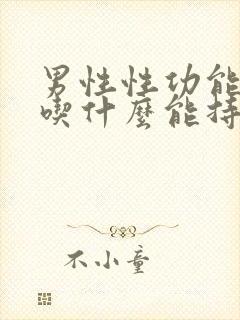 男性性功能
喫什麼能持
不小童